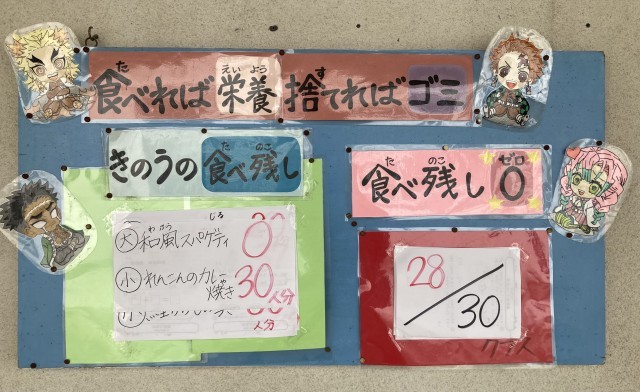 食べれば栄養 捨てればゴミ
きのうの食べ残し
大 和風スパゲティ 0
小 れんこんのカレー焼き 30人分
人分
食べ残し0
28/30
クラス